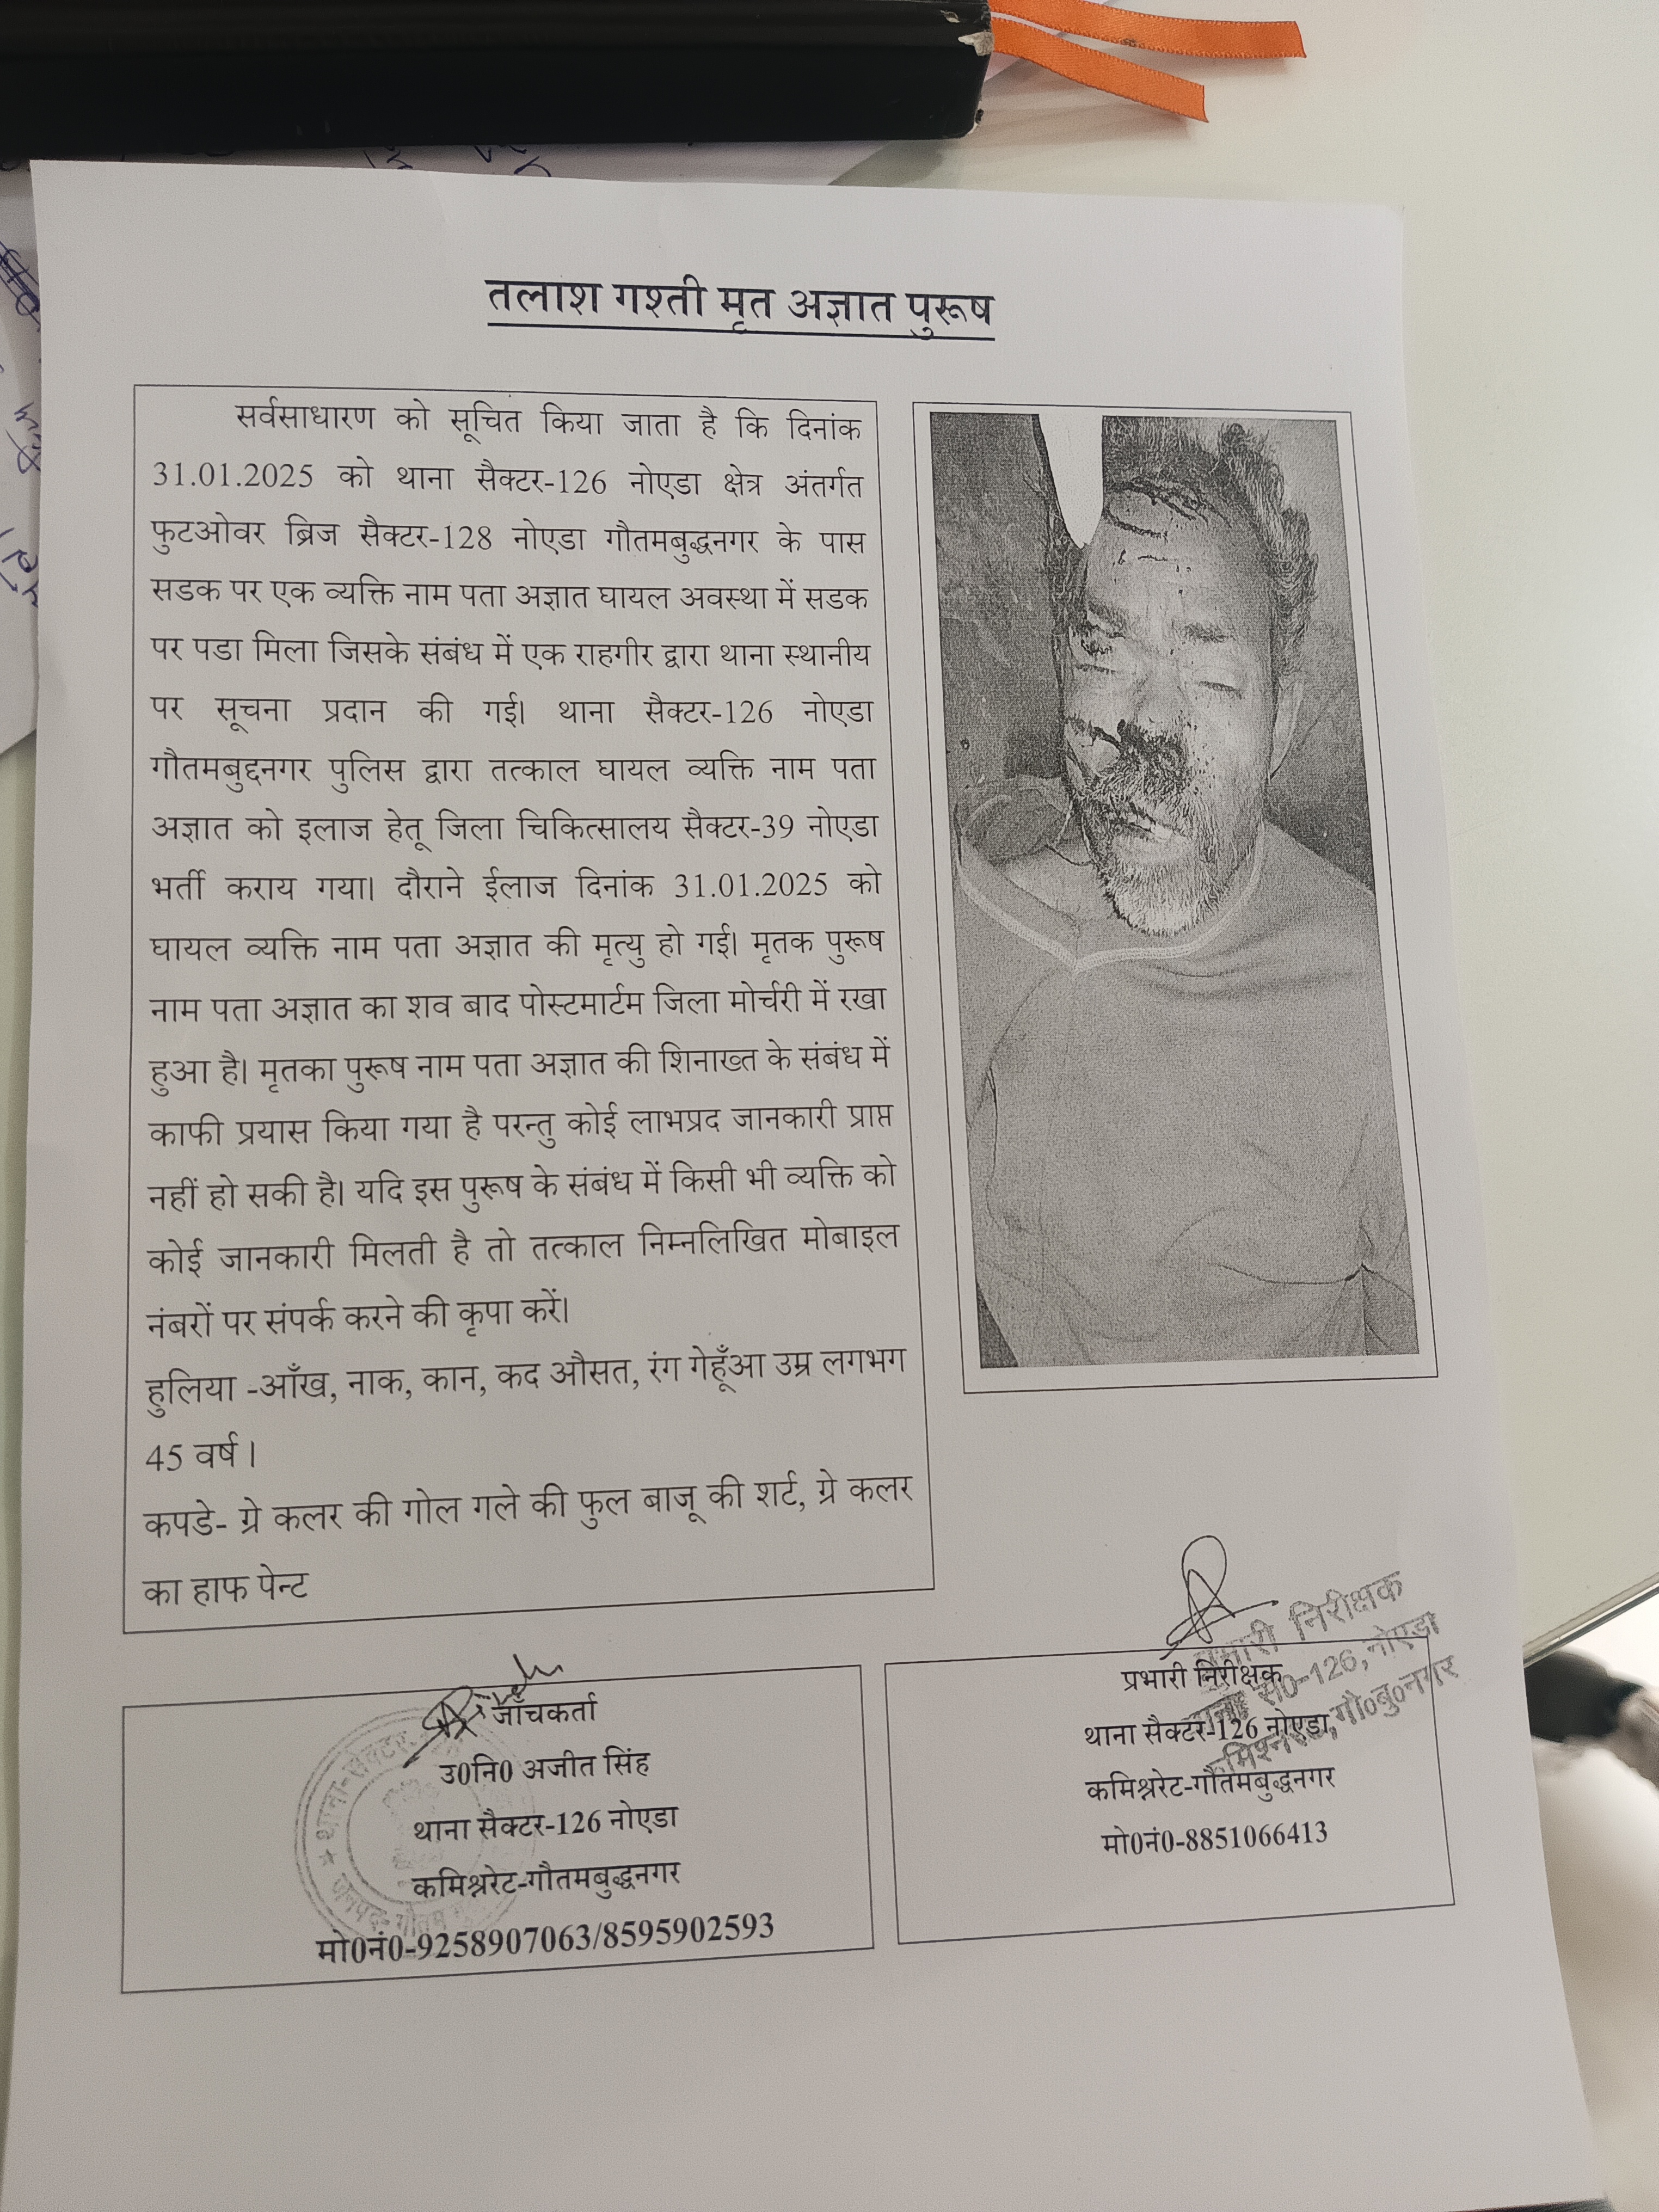 तलाश गश्ती मृत अज्ञात पुरूष
सर्वसाधारण को सूचित किया जाता है कि दिनांक
31.01.2025 को थाना सैक्टर-126 नोएडा क्षेत्र अंतर्गत
फुटओवर ब्रिज सैक्टर-128 नोएडा गौतमबुद्धनगर के पास
सडक पर एक व्यक्ति नाम पता अज्ञात घायल अवस्था में सडक
पर पडा मिला जिसके संबंध में एक राहगीर द्वारा थाना स्थानीय
पर सूचना प्रदान की गई। थाना सैक्टर-126 नोएडा
गौतमबुद्दनगर पुलिस द्वारा तत्काल घायल व्यक्ति नाम पता
अज्ञात को इलाज हेतू जिला चिकित्सालय सैक्टर-39 नोएडा
भर्ती कराय गया। दौराने ईलाज दिनांक 31.01.2025 को
घायल व्यक्ति नाम पता अज्ञात की मृत्यु हो गई। मृतक पुरूष
नाम पता अज्ञात का शव बाद पोस्टमार्टम जिला मोर्चरी में रखा
हुआ है। मृतका पुरूष नाम पता अज्ञात की शिनाख्त के संबंध में
काफी प्रयास किया गया है परन्तु कोई लाभप्रद जानकारी प्राप्त
नहीं हो सकी है। यदि इस पुरूष के संबंध में किसी भी व्यक्ति को
कोई जानकारी मिलती है तो तत्काल निम्नलिखित मोबाइल
नंबरों पर संपर्क करने की कृपा करें।
हुलिया -आँख, नाक, कान, कद औसत, रंग गेहूँआ उम्र लगभग
45 वर्ष ।
कपडे- ग्रे कलर की गोल गले की फुल बाजू की शर्ट, ग्रे कलर
का हाफ पेन्ट
जाँचकर्ता
उ0नि0 अजीत सिंह
थाना सैक्टर-126 नोएडा
कमिश्नरेट-गौतमबुद्धनगर
मो0नं0-9258907063/8595902593
थाना-सैक्टर-
जनपद-गौतम
प्रभारी निरीक्षक
थाना सैक्टर-126 नोएडा
कमिश्नरेट-गौतमबुद्धनगर
मो0नं0-8851066413
प्रभारी निरीक्षक
थाना से0-126, नोएडा
कमिश्नरेट, गौ0बु0नगर